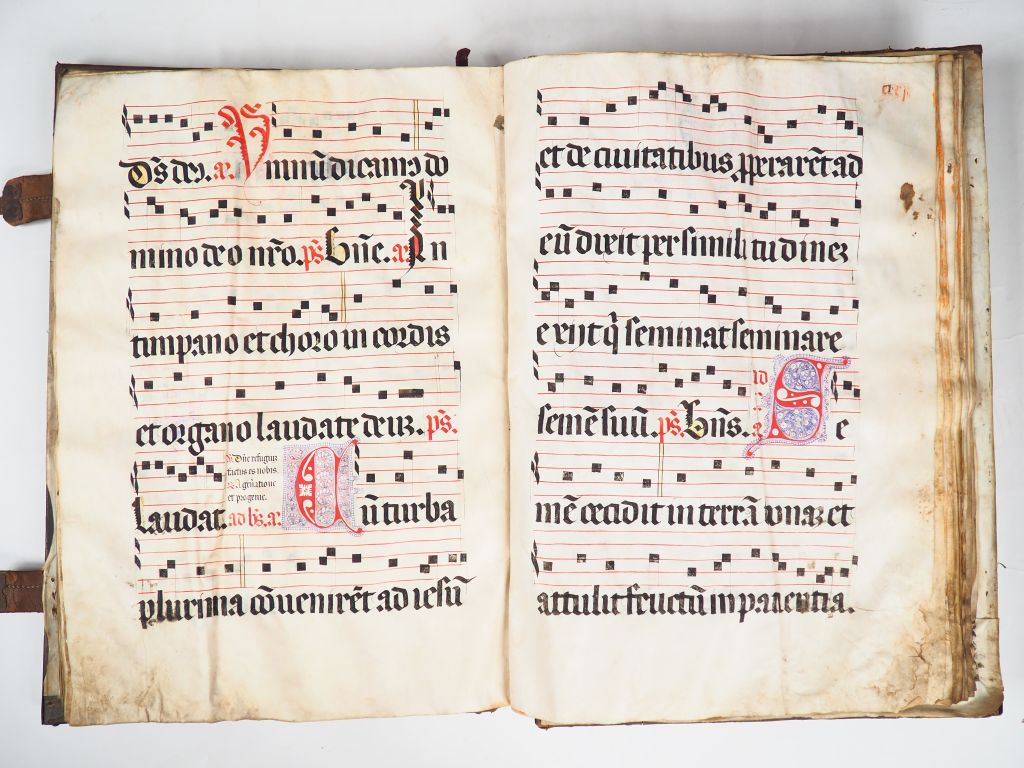 Ds deꝰ. æ. Ymnū dicamꝰ do
mino deo nr̄o. ps̄. Bn̄e. a. In
timpano et choro in cordis
et organo laudate deuꝫ. ps̄.
Dn̄e refugiū
factus es nobis.
A gn̄atione
et progenie.
Laudat. ad bs̄. a. Cū turba
plurima cōuenirēt ad iesū
et de ciuitatibus ꝓperarēt ad
eū dixit per simili tudineꝫ
exijt q̄ seminat seminare
semē suū. ps̄. Bn̄s. ad Se
mē cecidit in terrā bonaꝫ et
attulit fructū in pacientia.